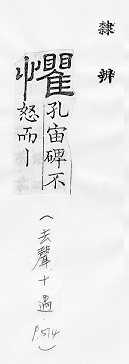 隸辨
懼孔宙碑不
怒而丨
(去聲十遇
P.514)